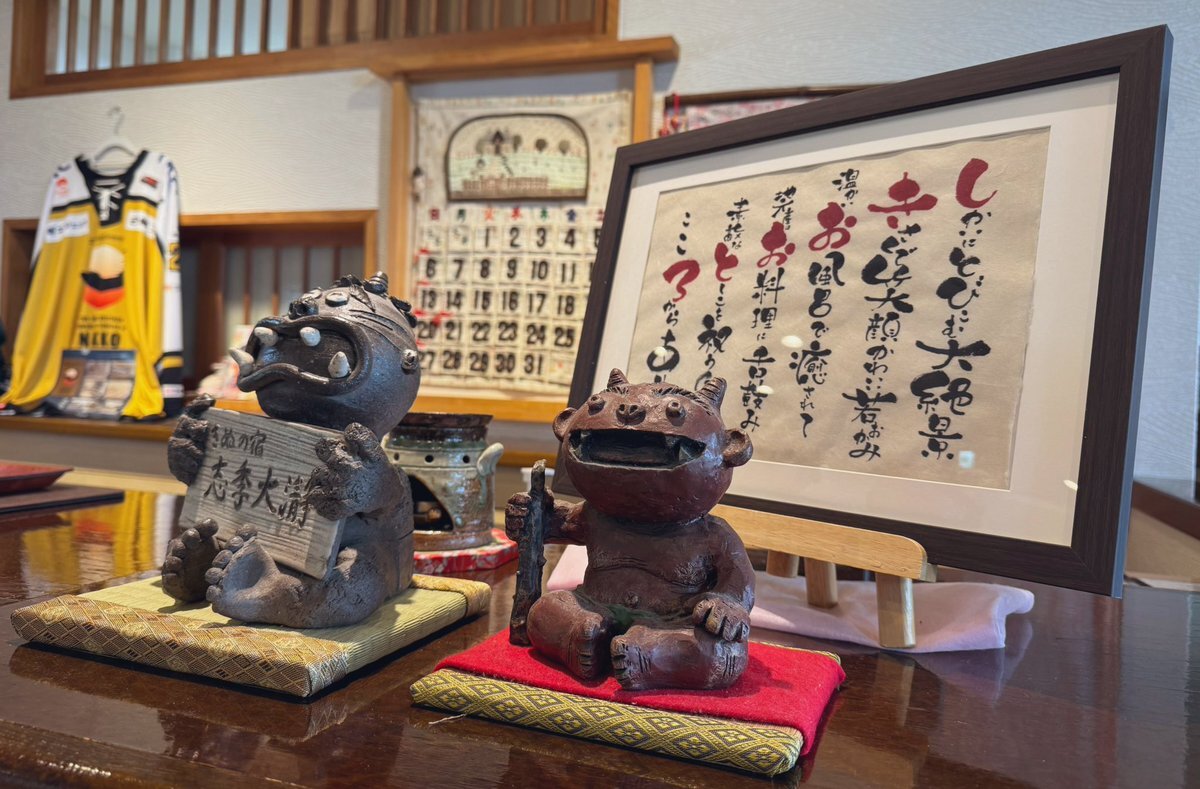 きぬの宿
志季大瀞
しかいにとびこむ大絶景
きさくな笑顔かわいい若おかみ
温かいお風呂で癒されて
お料理に舌鼓み
素敵な
こころからあ
日 月 火 水 木 金
1 2 3 4 5
6 7 8 9 10 11
13 14 15 16 17 18
20 21 22 23 24 25
27 28 29 30 31
NEKO